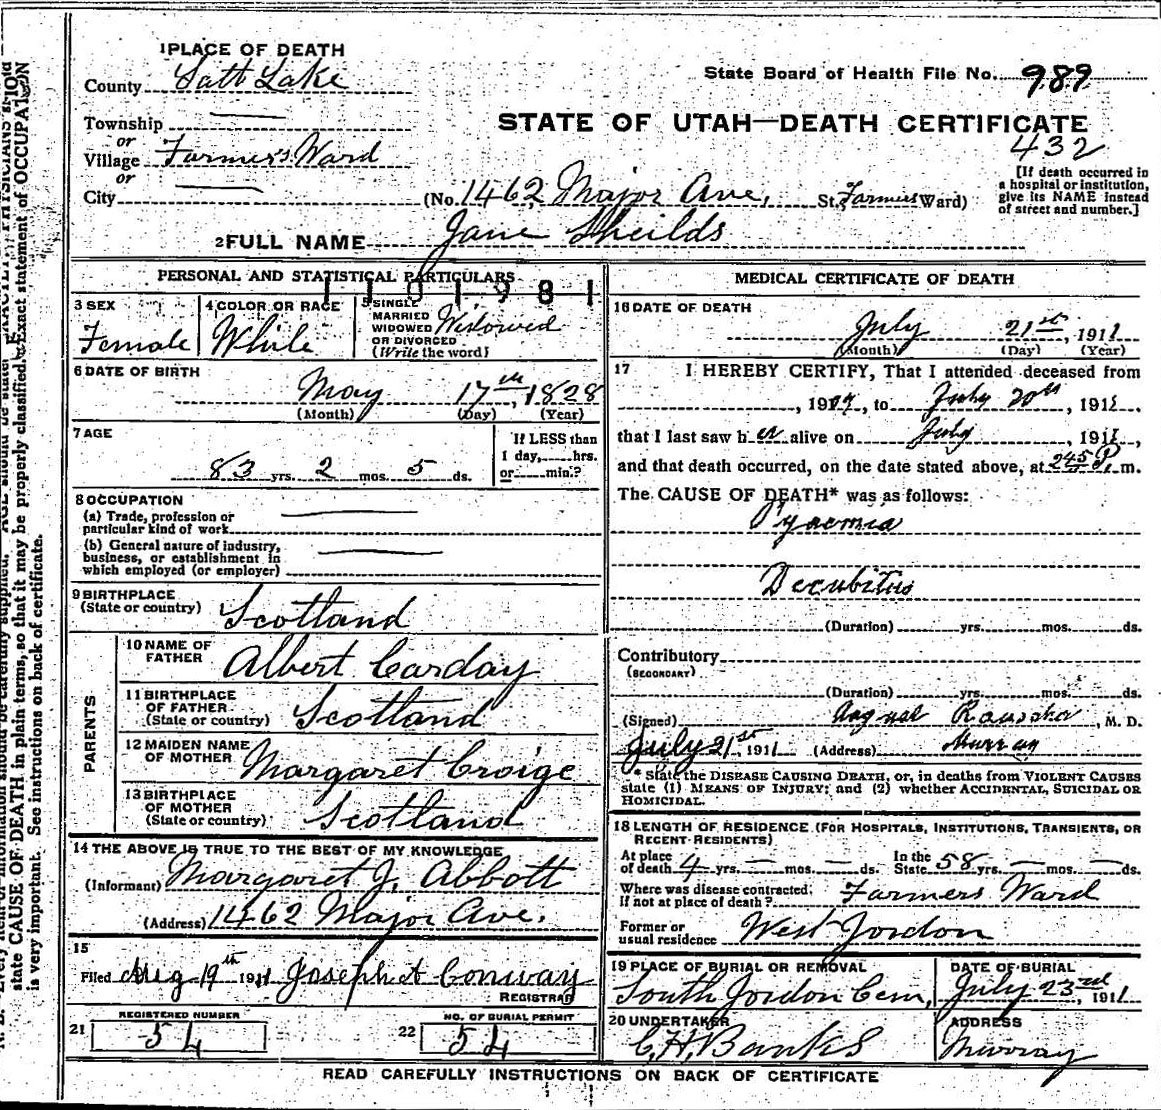 1 PLACE OF DEATH
County Salt Lake
State Board of Health File No. 989
Township
or
Village Farmer's Ward
or
City
STATE OF UTAH—DEATH CERTIFICATE
432
[If death occurred in
a hospital or institution,
give its NAME instead
of street and number.]
(No. 1462 Major Ave, St. Farmers Ward)
2 FULL NAME Jane Sheilds
PERSONAL AND STATISTICAL PARTICULARS
1101981
3 SEX
Female
4 COLOR OR RACE
White
5 SINGLE
MARRIED
WIDOWED
OR DIVORCED
(Write the word)
Widowed
6 DATE OF BIRTH
May 17th, 1828
(Month) (Day) (Year)
7 AGE
83 yrs. 2 mos. 5 ds.
If LESS than
1 day, hrs.
or min.?
8 OCCUPATION
(a) Trade, profession or
particular kind of work
(b) General nature of industry,
business, or establishment in
which employed (or employer)
9 BIRTHPLACE
(State or country) Scotland
PARENTS
10 NAME OF
FATHER Albert Carday
11 BIRTHPLACE
OF FATHER
(State or country) Scotland
12 MAIDEN NAME
OF MOTHER Margaret Croige
13 BIRTHPLACE
OF MOTHER
(State or country) Scotland
14 THE ABOVE IS TRUE TO THE BEST OF MY KNOWLEDGE
(Informant) Margaret J. Abbott
(Address) 1462 Major Ave.
15
Filed Aug 19th 1911 Joseph A Conway
REGISTRAR
21 REGISTERED NUMBER
54
22 NO. OF BURIAL PERMIT
54
MEDICAL CERTIFICATE OF DEATH
16 DATE OF DEATH
July 21st, 1911
(Month) (Day) (Year)
17 I HEREBY CERTIFY, That I attended deceased from
, 19 , to July 20th, 1911,
that I last saw her alive on July , 1911,
and that death occurred, on the date stated above, at 245 P. m.
The CAUSE OF DEATH* was as follows:
Pyaemia
Decubitus
(Duration) yrs. mos. ds.
Contributory
(SECONDARY)
(Duration) yrs. mos. ds.
(Signed) , M. D.
July 21st, 1911 (Address) Murray
* State the DISEASE CAUSING DEATH, or, in deaths from VIOLENT CAUSES
state (1) MEANS OF INJURY; and (2) whether ACCIDENTAL, SUICIDAL OR
HOMICIDAL.
18 LENGTH OF RESIDENCE (FOR HOSPITALS, INSTITUTIONS, TRANSIENTS, OR
RECENT RESIDENTS)
At place
of death 4 yrs. mos. ds. In the
State 58 yrs. mos. ds.
Where was disease contracted,
If not at place of death? Farmers Ward
Former or
usual residence West Jordon
19 PLACE OF BURIAL OR REMOVAL
South Jordon Cem,
DATE OF BURIAL
July 23rd, 1911
20 UNDERTAKER
C.H. Banks
ADDRESS
Murray
READ CAREFULLY INSTRUCTIONS ON BACK OF CERTIFICATE
state CAUSE OF DEATH in plain terms, so that it may be properly classified. Exact statement of OCCUPATION
is very important. See instructions on back of certificate.